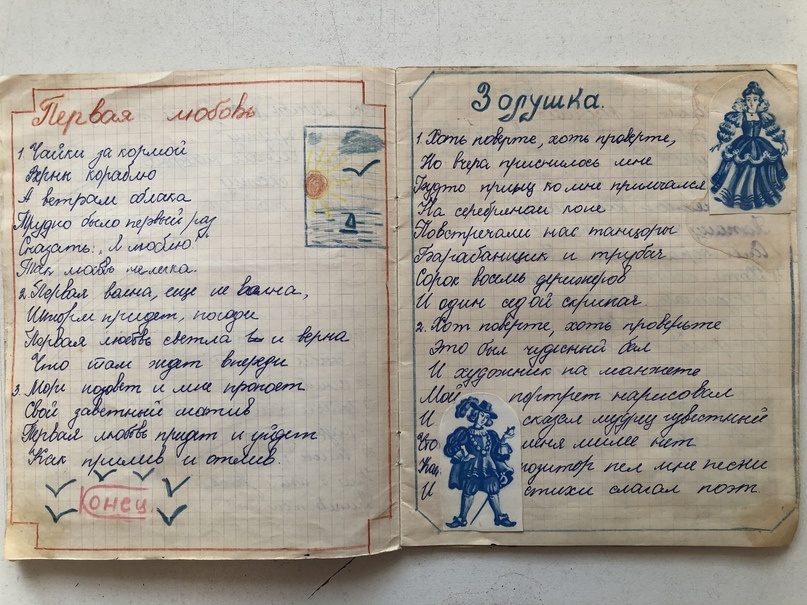 Первая любовь
1. Чайки за кормой
Верны кораблю
А ветрам облака
Трудно было первый раз
Сказать: „Я люблю"
Так любовь нелегка.
2. Первая волна, еще не волна,
Шторм придет, погоди
Первая любовь светла и верна
Что там ждет впереди
3. Море позовет и мне пропоет
Свой заветный мотив
Первая любовь придет и уйдет
Как прилив и отлив.
Конец
Золушка.
1. Хоть поверте, хоть проверте,
Но вчера приснилось мне
Будто принц ко мне примчался
На серебряном коне
Повстречали нас танцоры
Барабанщик и трубач
Сорок восемь дирижеров
И один седой скрипач.
2. Хот поверте, хоть проверьте
Это был чудесный бал
И художник на манжете
Мой портрет нарисовал
И сказал мудрец известный
Что меня милее нет
Ком позитор пел мне песни
И стихи слагал поэт